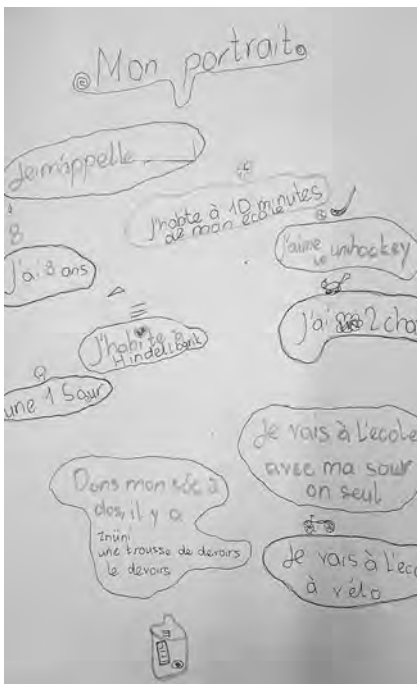 Mon portrait
Je m'appelle
J'habte à 10 minutes
de mon école
8
J'ai 8 ans
J'aime
unihockey
J'habite à
Hindelbank
J'ai 2 cha
une 1 Sœur
Je vais à l'ecole
avec ma sœur
on seul
Dans mon sac à
dos, il y a
Znüni
une trousse de devoirs
le devoirs
Je vais à l'eco
à vélo